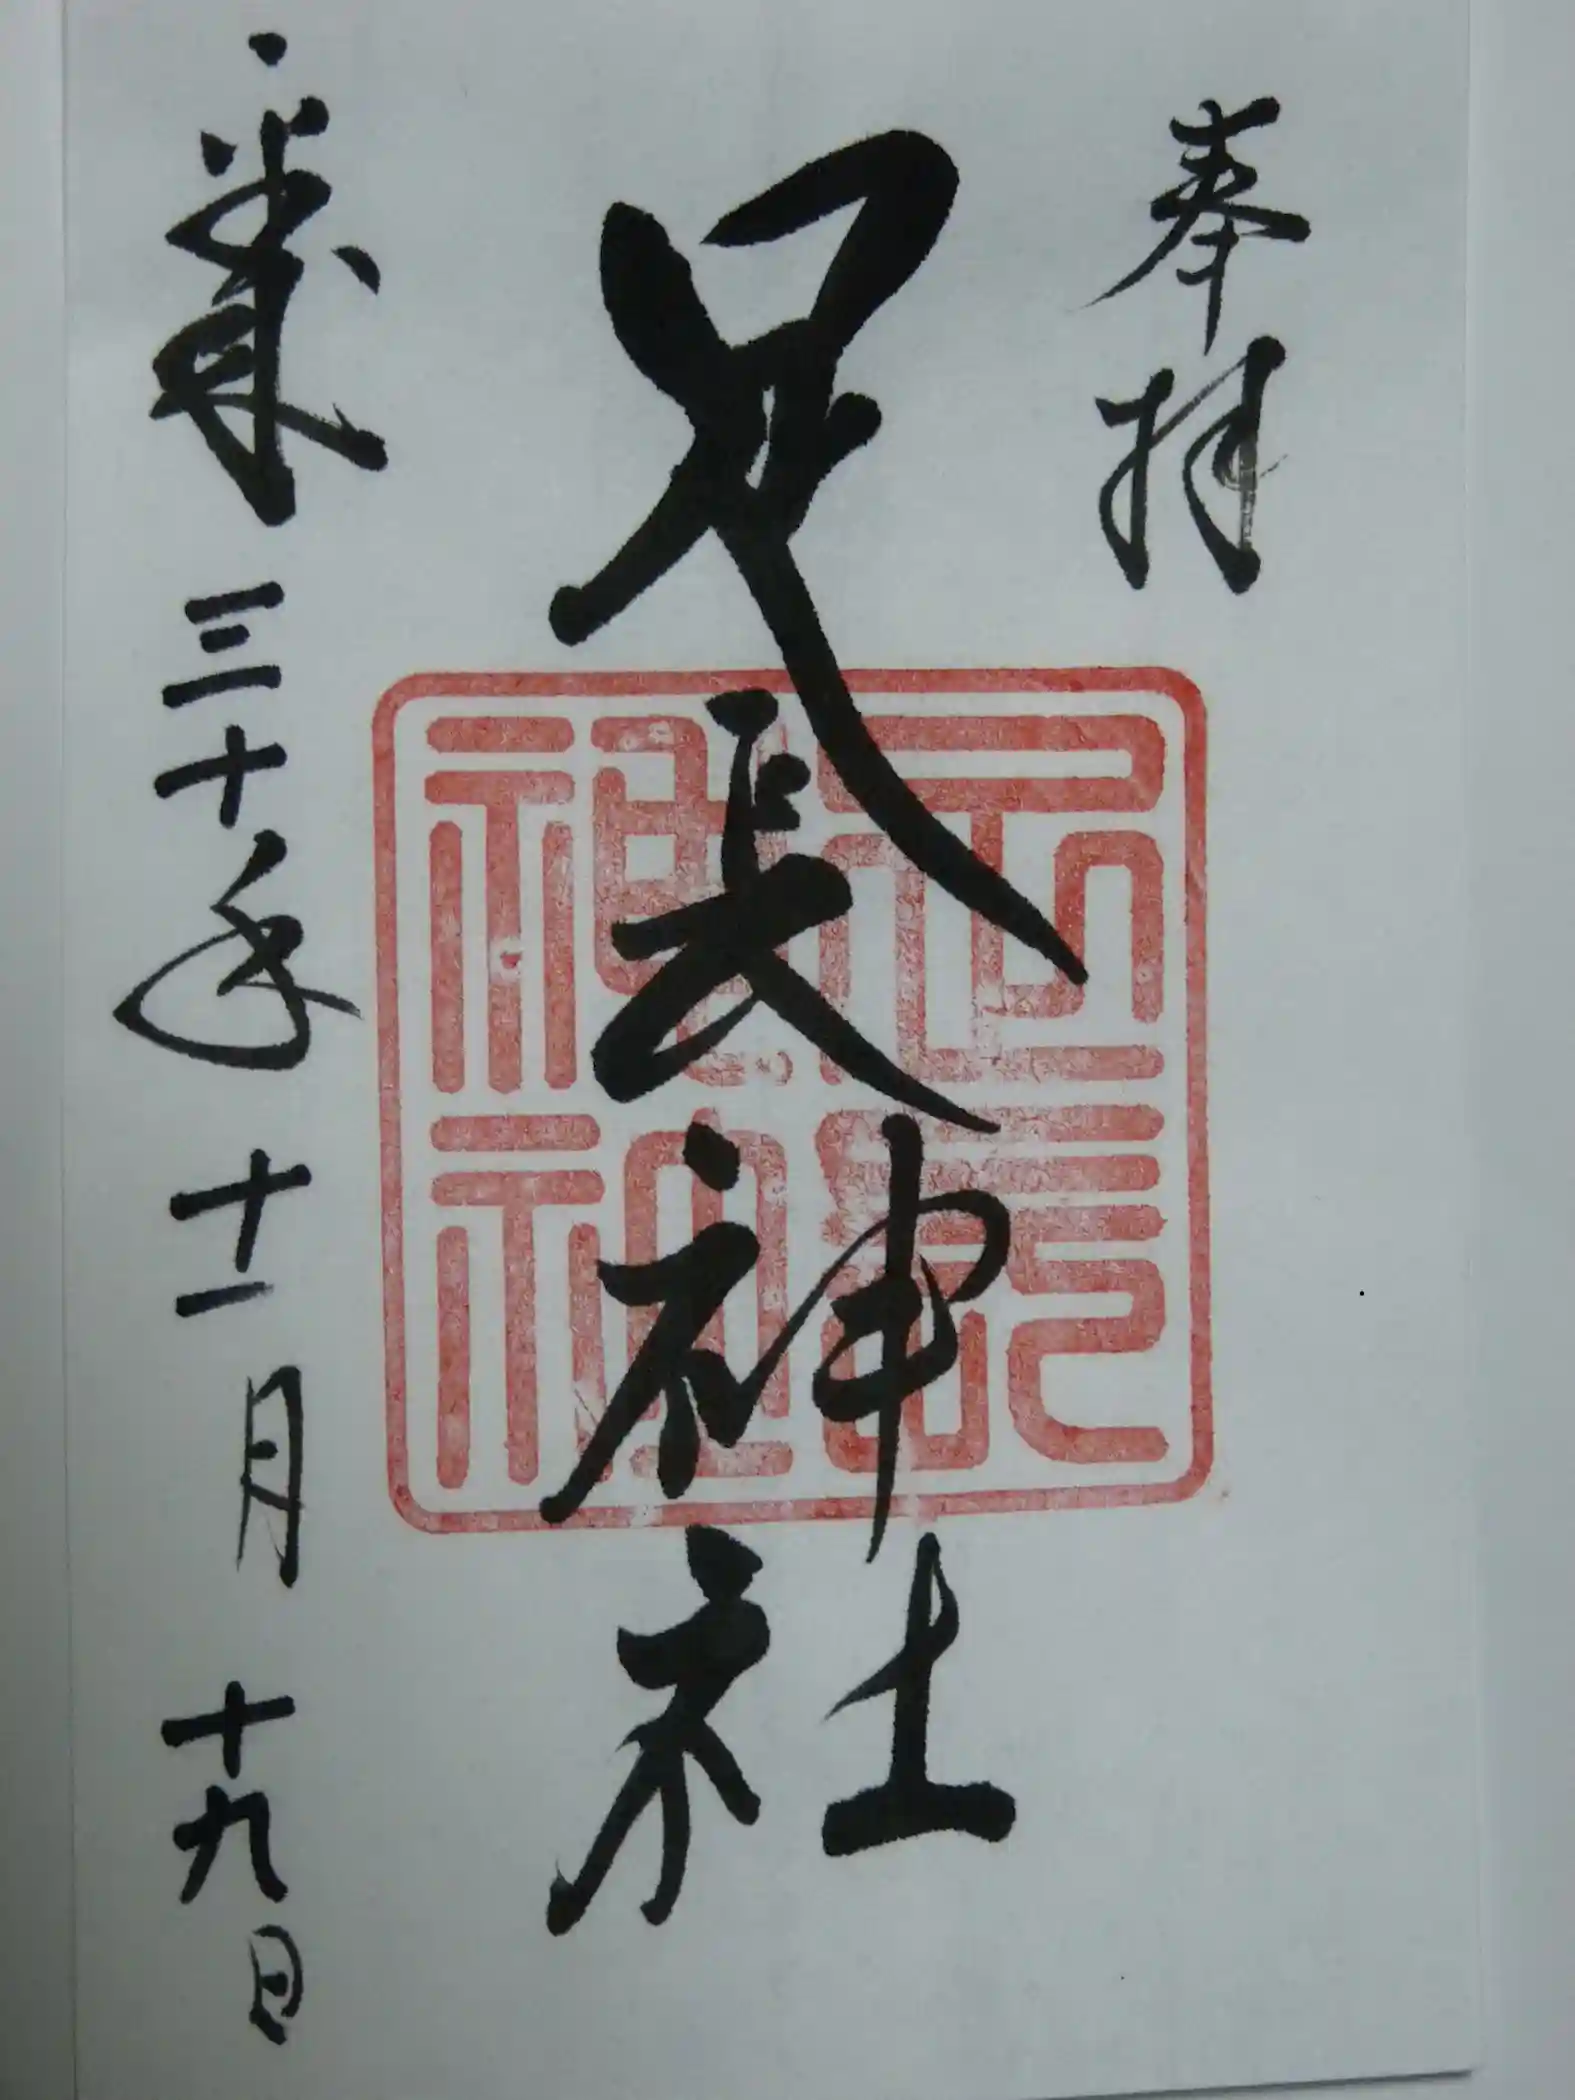 奉拝
足長神社
平成三十年 十一月 十九日
足長
神社